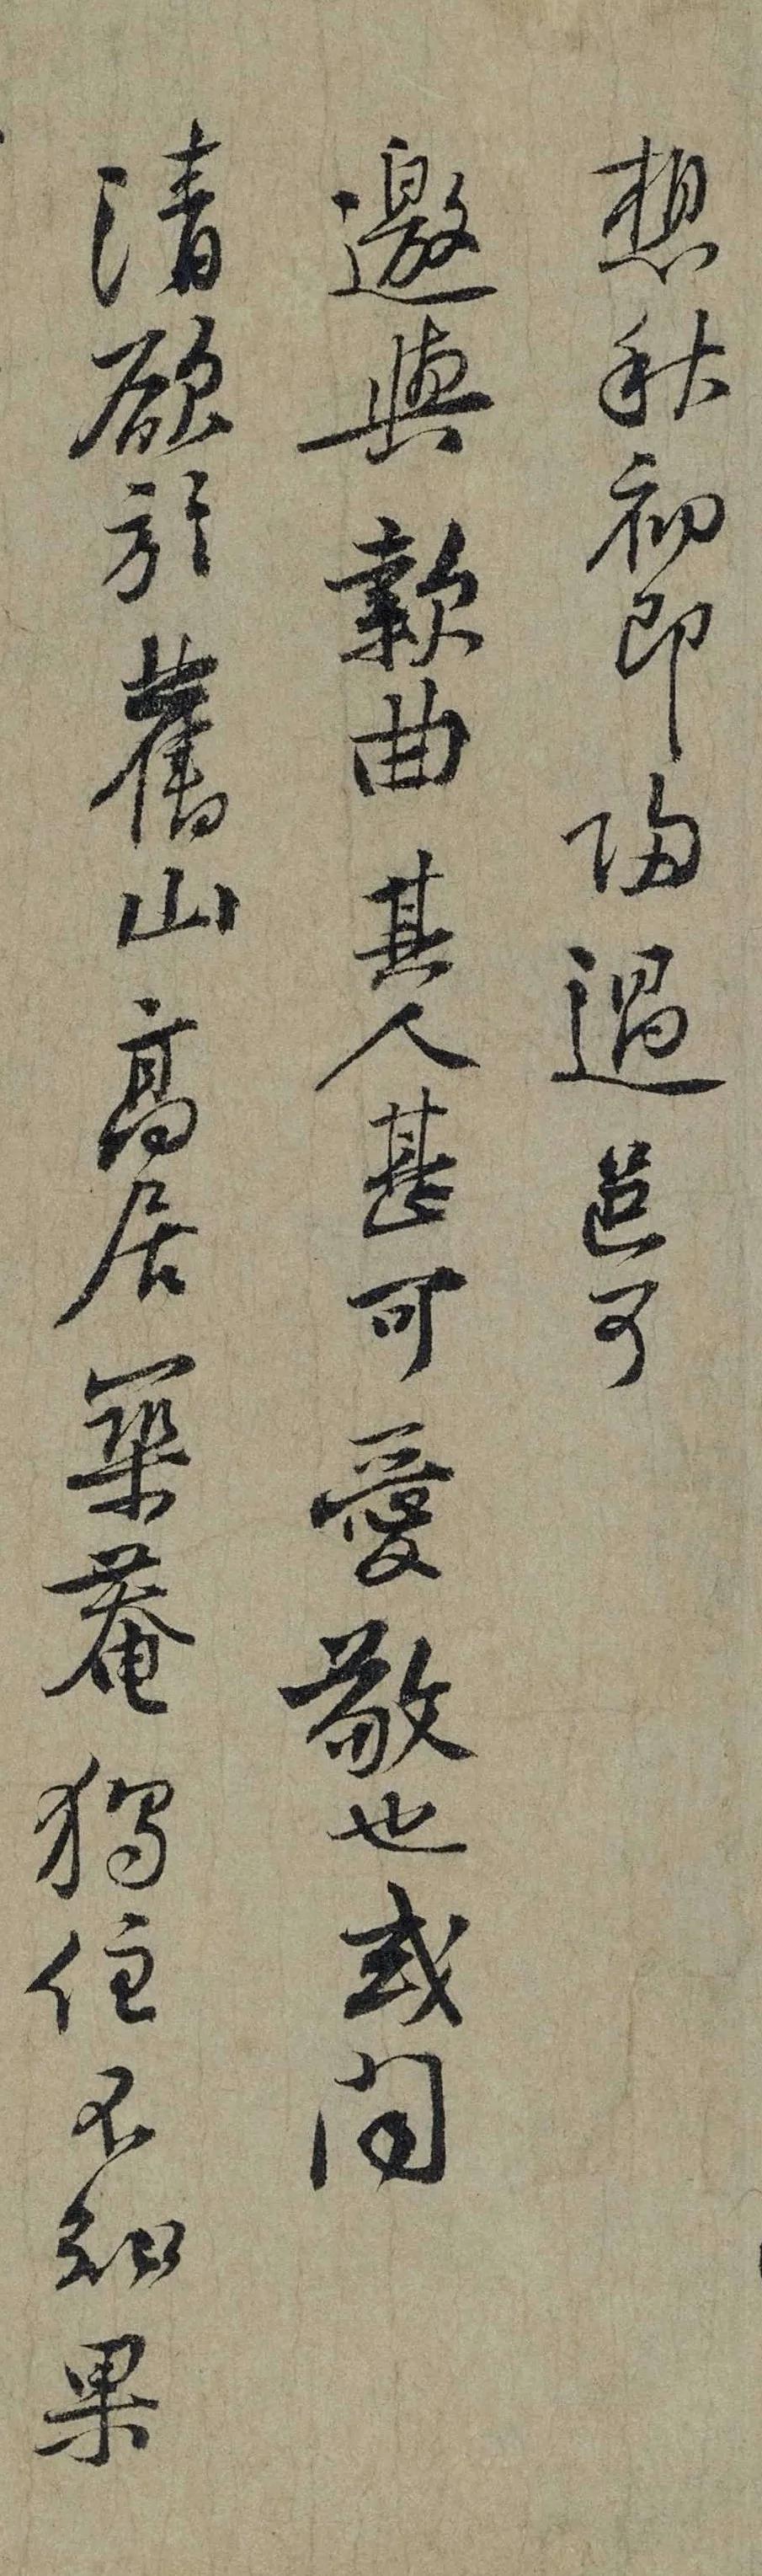 想秋初即歸過邑可
邀與欵曲其人甚可愛敬也或聞
清欲於舊山高居築菴獨住不知果